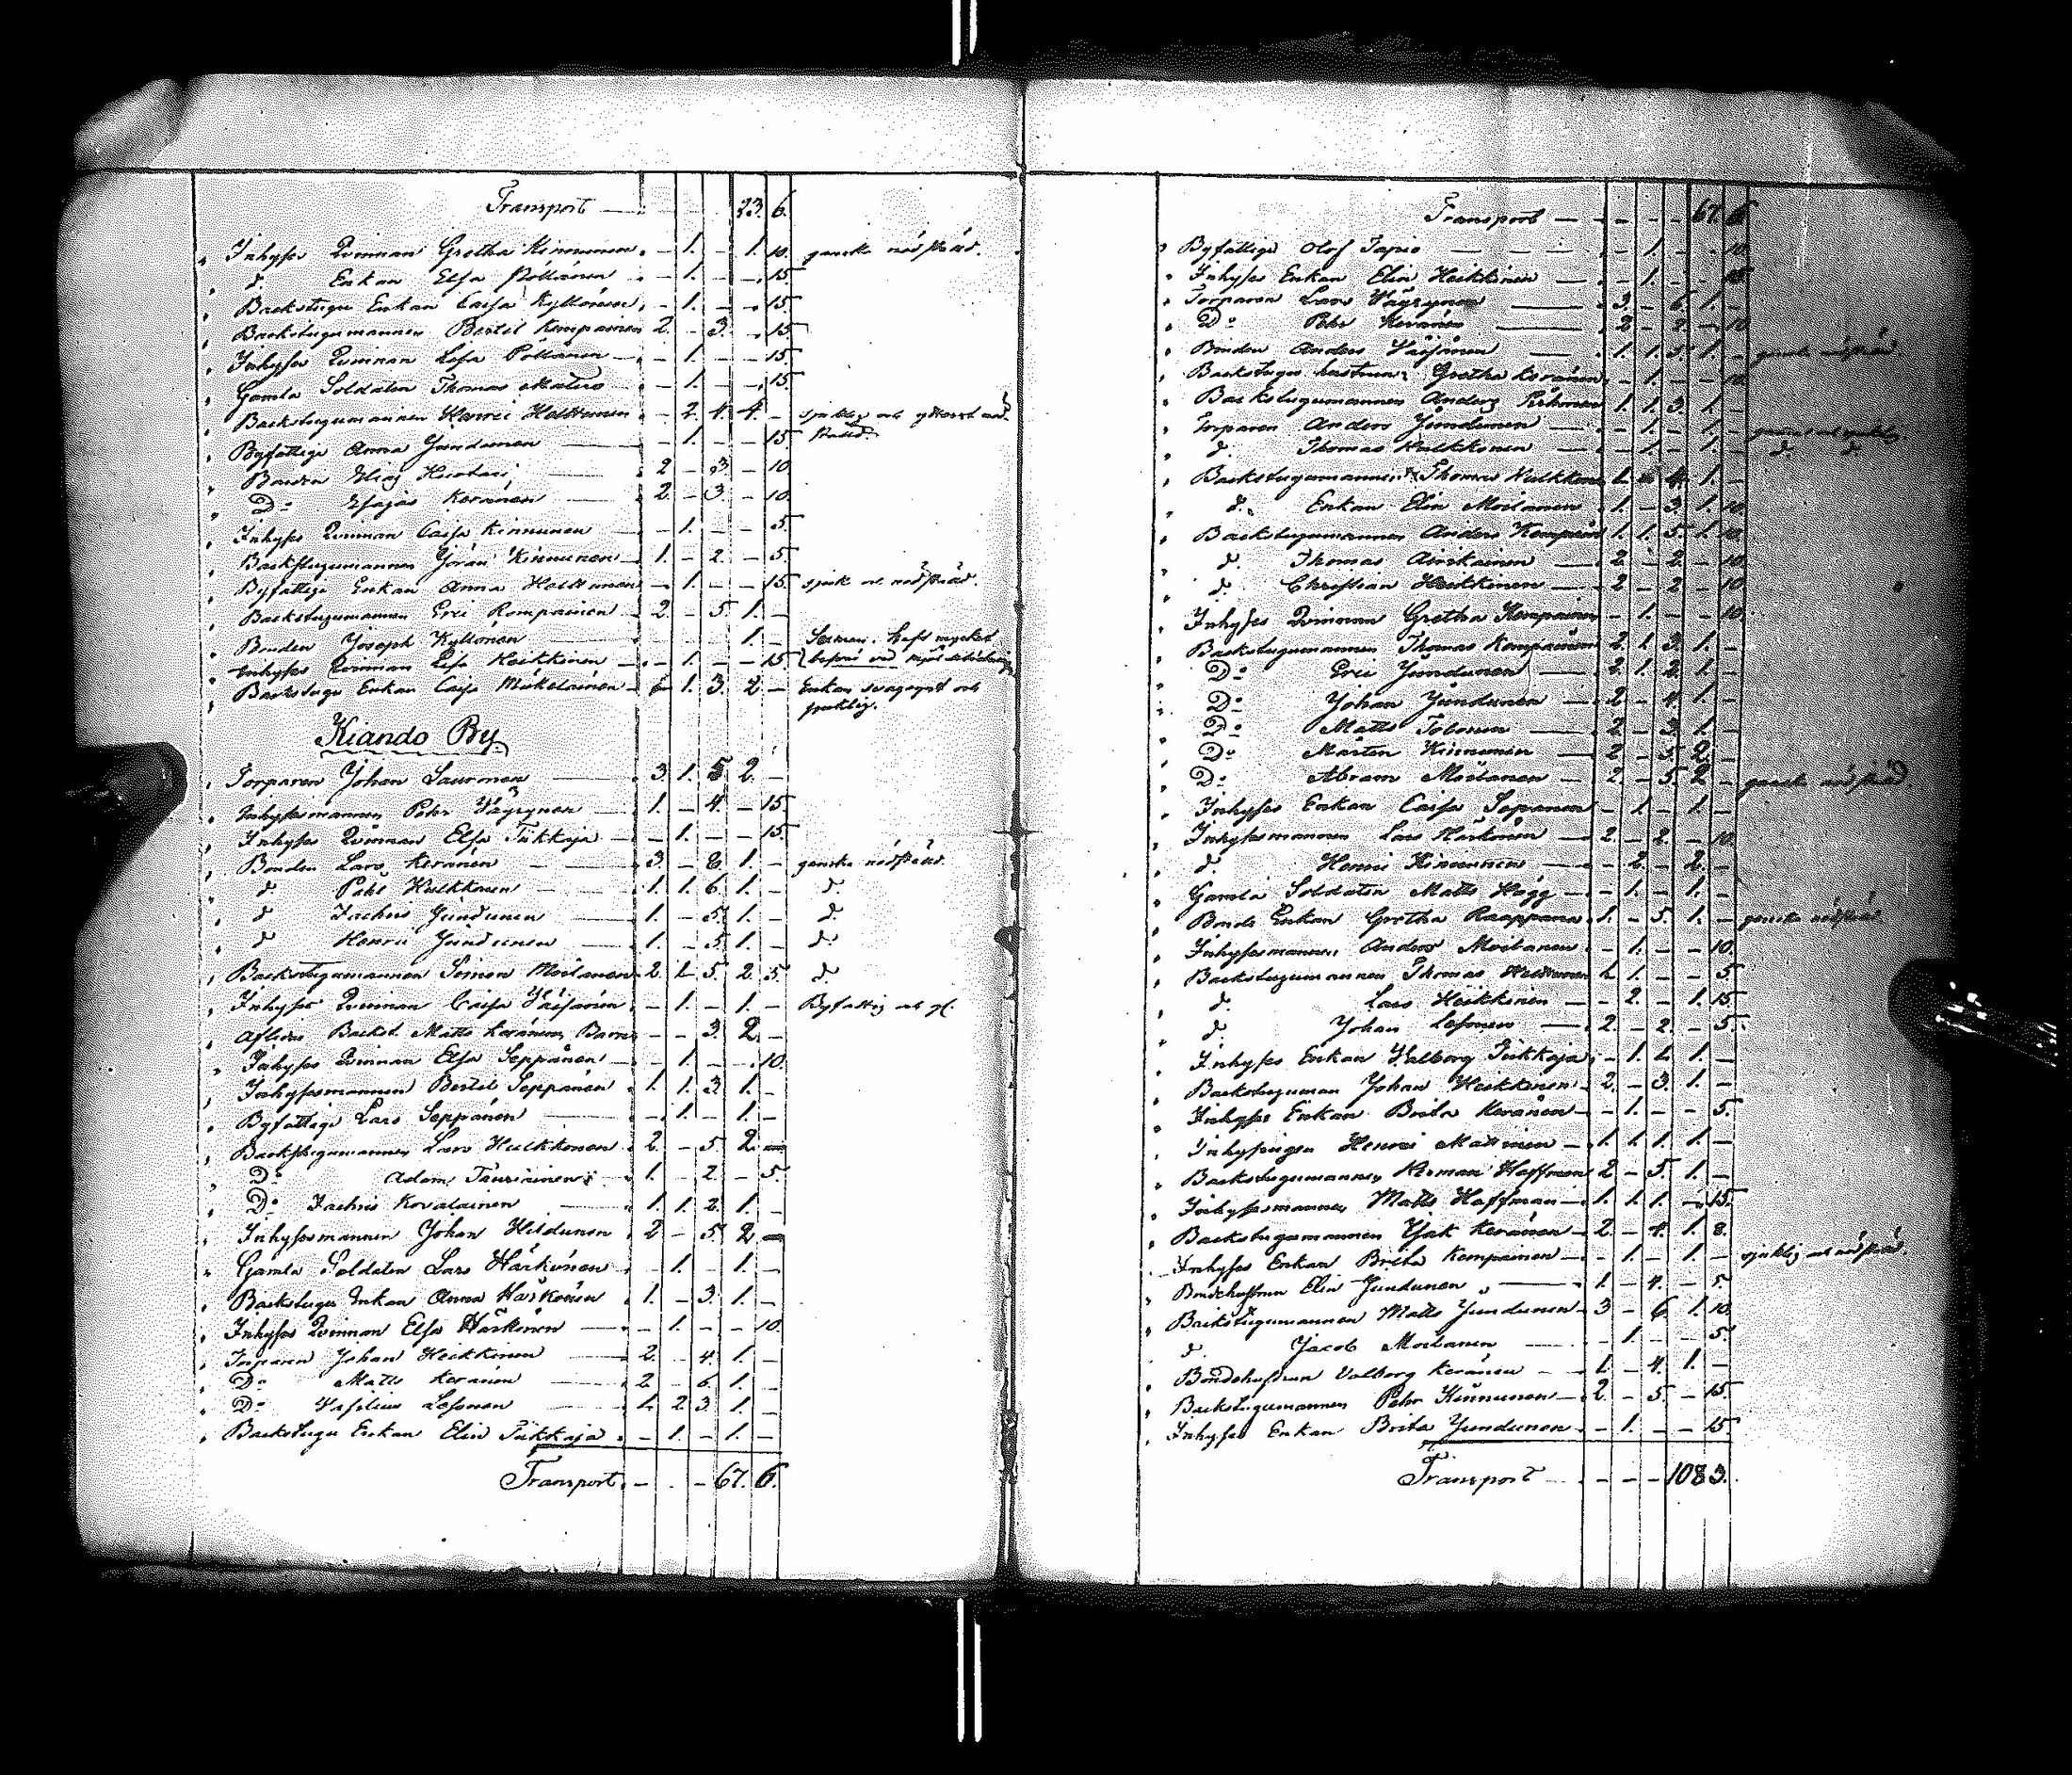 Transport — 23. 6.
Inhyses Qvinnan Gretha Kinnunen - 1. - 1. 10. ganska nödstäd.
d. Enkan Elsa Pöllänen - 1. - - 15.
Backstugu Enkan Caisa Kyllönen - 1. - - 15.
Backstugumannen Bertil Kempainen 2. - 3. - 15
Inhyses Qvinnan Lisa Pöllänen - 1. - - 15.
Gamla Soldaten Thomas Matero - 1. - - 15.
Backstugumannen Henric Heikkinen - 2. 4. 4. - sjuklig och ytterst nöd-
Byfattige Anna Jundunen - 1. - - 15. städ.
Bonden Elias - 2 - 3. - 10.
Do Esajas Keränen - 2. - 3. - 10.
Inhyses Qvinnan Caisa Kinnunen - 1. - - 5.
Backstugumannen Göran Kinnunen 1. - 2. - 5.
Byfattige Enkan Anna - 1. - - 15. sjuk oc nödstäd.
Backstugumannen Eric Kempainen 2. - 5. 1. -
Bonden Joseph Kyllönen 1. - haft mycket
Inhyses Qvinnan Lisa Heikkinen - 1. - - 15. besvär vid
Backstugu Enkan Caisa Mikkelainen - 1. 3. 2 - Enkan svagsynt och
sjuklig.
Kiando By
Torparen Johan Laurinen 3. 1. 5. 2. -
Inhysesmannen Pehr Väyrynen 1. - 4. - 15.
Inhyses Qvinnan Elsa Tikkaja - 1. - - 15.
Bonden Lars Keränen 3. - 8. 1. - ganska nödstäd.
d Pehr Hulkkonen 1. 1. 6. 1. - d.
d Zachris Jundunen 1. - 5. 1. - d.
d Henric Jundunen 1. - 5. 1. - d.
Backstugumannen Simon Moilanen 2. 1. 5. 2. 5. d
Inhyses Qvinnan Caisa Väisänen - 1. - 1. - Byfattig och gl.
Aflidne Backst. Matts Keränens Barn - - 3. 2. -
Inhyses Qvinnan Elsa Seppänen - 1. - - 10.
Inhysesmannen Bertil Seppänen 1. 1. 3. 1. -
Byfattige Lars Seppänen - 1. - 1. -
Backstugumannen Lars Hulkkonen 2. - 5. 2. -
Do Adam Tauriainen 1. - 2. - 5.
Do Zachris Kovalainen 1. 1. 2. 1. -
Inhysesmannen Johan Hildunen 2 - 5. 2. -
Gamla Soldaten Lars Härkönen - 1. - 1. -
Backstugu Enkan Anna Härkönen 1. - 3. 1. -
Inhyses Qvinnan Elsa Härkönen - 1. - - 10.
Torparen Johan Heikkinen 2. - 4. 1. -
Do Matts Keränen 2. - 6. 1. -
Do Vasilius Lesonen 1. 2. 3. 1. -
Backstugu Enkan Elin Tikkaja - 1. - 1. -
Transport - - - 67. 6.
Transport — - - - 67. 6
Byfattige Olof Tapio - 1. - - 10.
Inhyses Enkan Elin Heikkinen - 1. - - 15
Torparen Lars Väyrynen 3. - 6. 1. -
Do Pehr Keränen 2 - 2. - 10
Bonden Anders Väisänen 1. 1. 5. 1. - ganska nödstäd
Backstugu hustrun Gretha Keränen - 1. - - 10.
Backstugumannen Anders Pirhonen 1. 1. 3. 1. -
Torparen Anders Jundunen - 1. - 1. -
d. Thomas Hulkkonen - 1. - 1. - d d.
Backstugumannen Thomas Hulkkonen 1. 4. 1. -
d. Enkan Elin Moilanen 1. - 3. 1. 10.
Backstugumannen Anders Kempainen 1. 1. 5. 1. 10.
d. Thomas Airikainen 2. - 2. - 10
d. Christian Heikkinen 2 - 2 - 10
Inhyses Qvinnan Gretha Kempainen - 1. - - 10.
Backstugumannen Thomas Kempainen 2. 1. 3. 1. -
Do Eric Jundunen 2. 1. 2. 1. -
Do Johan Jundunen 2 - 4. 1. -
Do Matts Tolonen 2. - 3. 1. -
Do Mårten Kinnunen 2. - 5. 2. -
Do Abram Moilanen 2. - 5. 2. - ganska nödstäd
Inhyses Enkan Caisa Sopanen - 1. - 1. -
Inhysesmannen Lars Härkönen 2. - 2. - 10.
d. Henric Kinnunen - 2. - 2. -
Gamla Soldaten Matts Hägg - 1. - 1. -
Bonde Enkan Gretha Raappana 1. - 5. 1. - ganska nödstäd
Inhysesmannen Anders Moilanen - 1. - - 10.
Backstugumannen Thomas 1. 1. - - 5
d. Lars Heikkinen - 2. - 1. 15.
d. Johan Lesonen 2. - 2. - 5.
Inhyses Enkan Valborg Tikkaja - 1. 1. 1. -
Backstuguman Johan Heikkinen 2. - 3. 1. -
Inhyses Enkan Brita Keränen - 1. - - 5.
Inhysingen Henric Matinen 1. 1. 1. 1. -
Backstugumannen Herman Haffman 2 - 5. 1. -
Inhysesmannen Matts Haffman 1. 1. 1. - 15.
Backstugumannen Isak Keränen 2. - 4. 1. 8.
Inhyses Enkan Brita Kempainen - 1. - 1. - sjuklig och nödstäd.
Bondehustrun Elin Jundunen 1 - 4. - 5
Backstugumannen Matts Jundunen 3 - 6. 1. 10.
d. Jacob Moilanen - 1. - - 5.
Bondehustrun Valborg Keränen 1. - 4. 1. -
Backstugumannen Pehr Kinnunen 2. - 5 - 15.
Inhyses Enkan Brita Jundunen - 1. - - 15
Transport - - - 108 3.